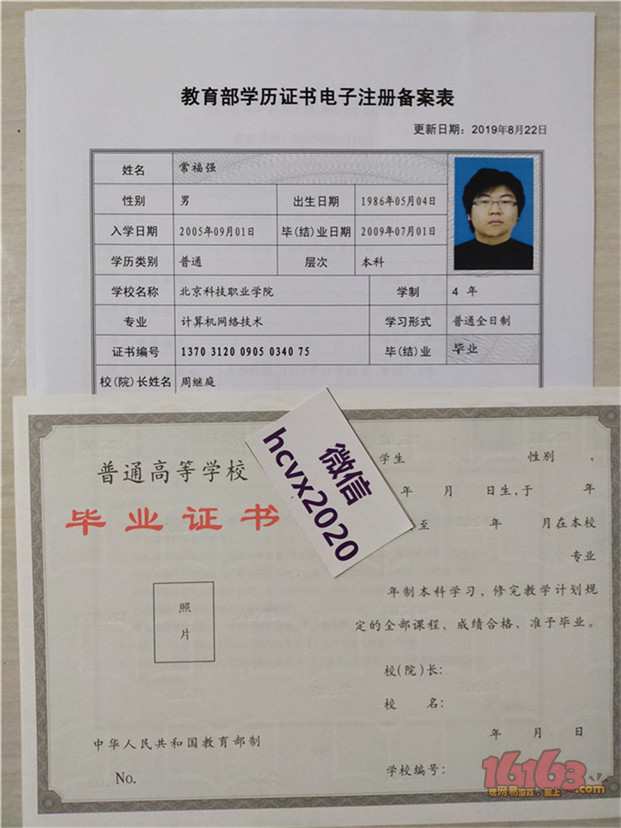 教育部学历证书电子注册备案表
更新日期：2019年8月22日
姓名 常福强
性别 男 出生日期 1986年05月04日
入学日期 2005年09月01日 毕(结)业日期 2009年07月01日
学历类别 普通 层次 本科
学校名称 北京科技职业学院 学制 4 年
专业 计算机网络技术 学习形式 普通全日制
证书编号 1370 3120 0905 0340 75 毕(结)业 毕业
校(院)长姓名 周继庭
微信
hcvx2020
普通高等学校
毕业证书
照
片
中华人民共和国教育部制
No.
学生 性别 ，
年 月 日生,于 年
至 年 月在本校
专业
年制本科学习，修完教学计划规
定的全部课程、成绩合格、准予毕业。
校(院)长:
校 名:
年 月 日
学校编号:
16163
.com